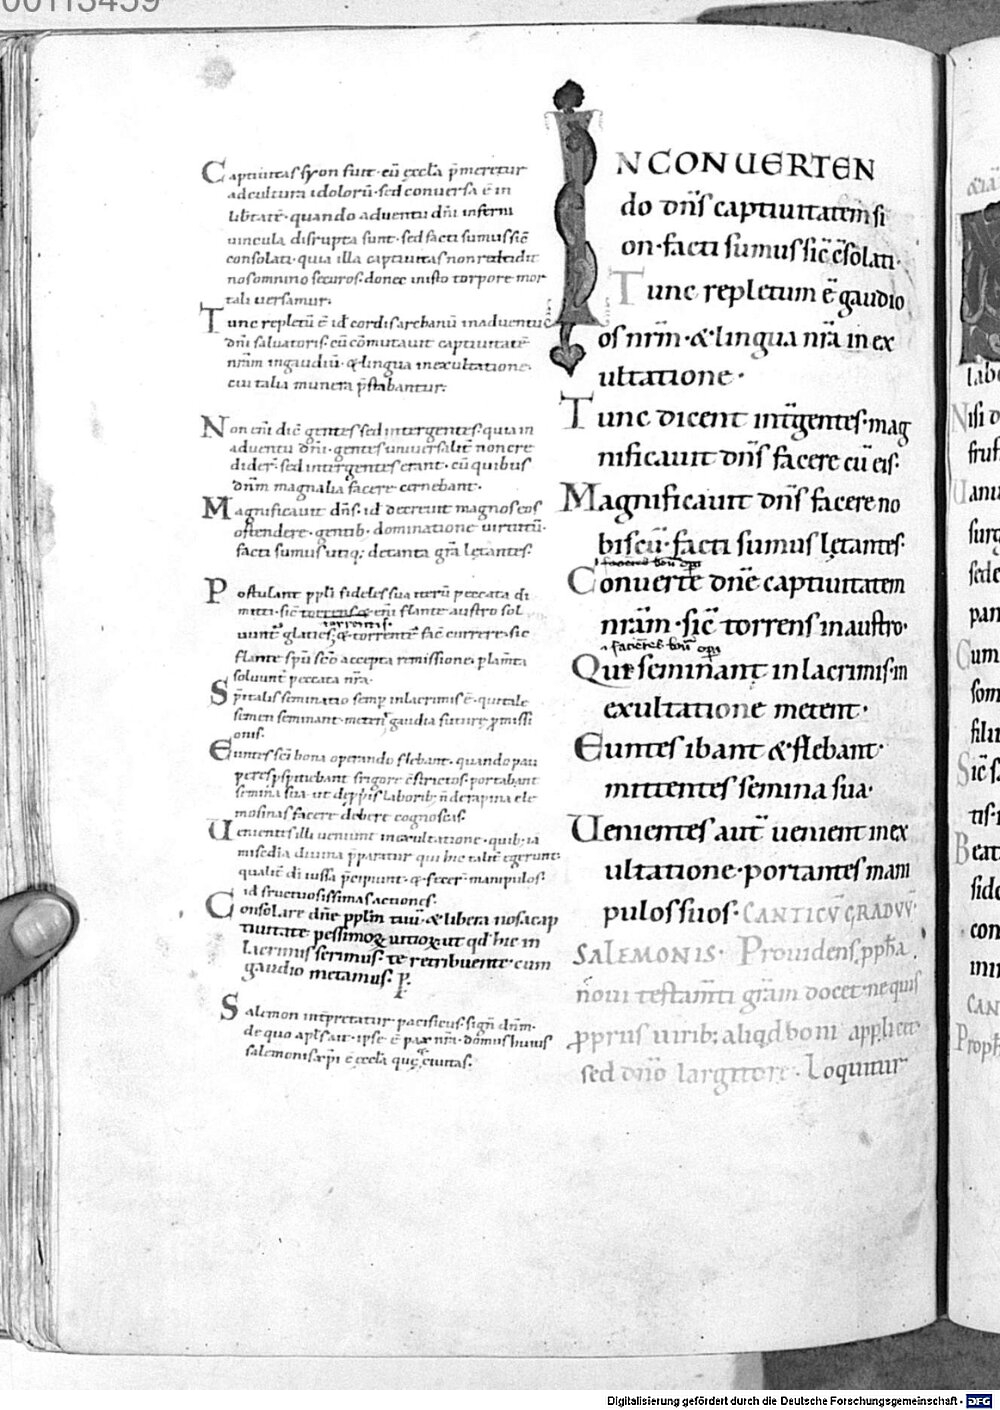 00113459
Captiuitas syon fuit cū eccl̄a p̄meretur
ad cultura idolorū· sed conuersa ē in
lib̄tatē· quando aduentu dn̄i inferni
uincula disrupta sunt· sed facti sumus sic̄
consolati· quia illa captiuitas non reddidit
nos omnino securos· donec in isto corpore mor
tali uersamur·
Tunc repletū ē id̄ cordis archanū in aduentu
dn̄i saluatoris· cū cōmutauit captiuitatē
nr̄am in gaudiū· & lingua in exultatione·
cui talia munera p̄stabantur·
Non eni dic̄ gentes sed inter gentes· quia in
aduentu dn̄i· gentes uniuersalit̄ non cre
dider̄· sed inter gentes erant· cū quibus
dn̄m magnalia facere cernebant·
Magnificauit dn̄s· id̄ decreuit magnos eos
ostendere· gentib· dominatione uirtutū·
facti sumus utiq; de tanta gr̄a lętantes·
Postulant ppl̄i fideles sua iterū peccata di
mitti· sic̄ torrens & eni flante austro sol
torrentis·
uunt̄ glacies· & torrentē fac̄ currere· sic
flante sp̄u sc̄o accepta remissione· p lam̄ta
soluunt̄ peccata nr̄a·
Sp̄italis seminatio semp̄ in lacrimis ē· qui tale
semen seminant· metent̄ gaudia future p̱missi
onis·
Euntes sc̄i bona operando flebant· quando pau
peres
frigore c̄strictos· portabant
semina sua· ut de p̱priis laborib; n̄ de rapina ele
mosinas facere debere cognoscas·
Uenientes illi ueniunt in exultatione· quib; ia
miscd̄ia diuina p̄paratur qui hic talit̄ egerunt·
qualit̄ di iussa p̄cipiunt· & fecer̄ manipulos·
id fructuosissimas actiones·
Consolare dn̄e ppl̄m tuū· & libera nos a cap
tiuitate pessimoꝝ uitioꝝ ut qd̄ hic in
lacrimis serimus· te retribuente· cum
gaudio metamus· p̱·
Salemon int̄pretatur pacificus· sign̄ dn̄m·
de quo apl̄s ait· ipse ē pax nr̄a· domus huius
salemonis xp̄i ē eccl̄a que ciuitas·
IN CONUERTEN
do dn̄s captiuitatem si
on· facti sumus sic̄ c̄solati·
Tunc repletum ē gaudio
os nr̄m· & lingua nr̄a in ex
ultatione·
Tunc dicent int̄ gentes· mag
nificauit dn̄s facere cū eis·
Magnificauit dn̄s facere no
biscū· facti sumus lętantes·
Conuerte dn̄e captiuitatem
nr̄am· sic̄ torrens in austro·
facientes bonū op̄a
Qui seminant in lacrimis· in
exultatione metent·
Euntes ibant & flebant·
mittentes semina sua·
Uenientes aut̄ uenient in ex
ultatione· portantes mani
pulos suos· CANTICV̄ GRADVV̄·
SALEMONIS· Prouidens ppħa
noui testam̄ti gr̄am docet· ne quis
p̱priis uirib; aliqd boni applicet·
sed dn̄o largitore· Loquitur
labo
Nisi d
frus
Uanu
surg
sede
pan
Cum
som
filii
Sic̄ s
tis·
Beat
side
con
inii
CAN
Proph
Digitalisierung gefördert durch die Deutsche Forschungsgemeinschaft - DFG